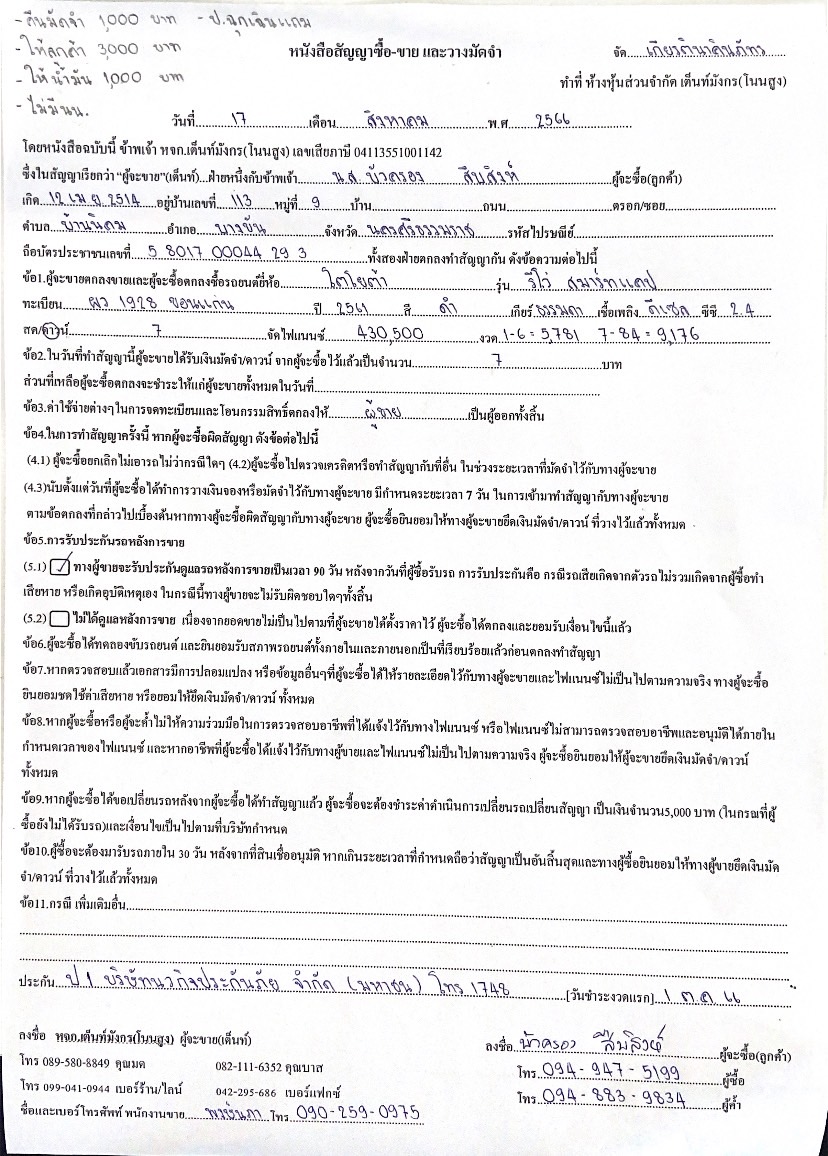 - คืนมัดจำ 1,000 บาท - ป.ฉุกเฉินแถม
- ให้ลูกค้า 3,000 บาท
- ให้น้ำมัน 1,000 บาท
- ไม่มีนน.
หนังสือสัญญาซื้อ-ขาย และวางมัดจำ
จัด เกียรตินาคินภัทร
ทำที่ ห้างหุ้นส่วนจำกัด เต็นท์มังกร(โนนสูง)
วันที่ 17 เดือน สิงหาคม พ.ศ. 2566
โดยหนังสือฉบับนี้ ข้าพเจ้า หจก.เต็นท์มังกร(โนนสูง) เลขเสียภาษี 04113551001142
ซึ่งในสัญญาเรียกว่า "ผู้จะขาย"(เต็นท์)...ฝ่ายหนึ่งกับข้าพเจ้า น.ส. บัวครอง สืบสิงห์ ผู้จะซื้อ(ลูกค้า)
เกิด 12 เม.ย. 2514 อยู่บ้านเลขที่ 113 หมู่ที่ 9 บ้าน ถนน ตรอก/ซอย
ตำบล บ้านนิคม อำเภอ บางขัน จังหวัด นครศรีธรรมราช รหัสไปรษณีย์
ถือบัตรประชาชนเลขที่ 5 8017 00044 29 3 ทั้งสองฝ่ายตกลงทำสัญญากัน ดังข้อความต่อไปนี้
ข้อ1.ผู้จะขายตกลงขายและผู้จะซื้อตกลงซื้อรถยนต์ยี่ห้อ โตโยต้า รุ่น รีโว่ สมาร์ทแคป
ทะเบียน ผว 1928 ขอนแก่น ปี 2561 สี ดำ เกียร์ ธรรมดา เชื้อเพลิง ดีเซล ซีซี 2.4
สด/ดาวน์ 7 จัดไฟแนนซ์ 430,500 งวด 1-6 = 5,781 7-84 = 9,176
ข้อ2.ในวันที่ทำสัญญานี้ผู้จะขายได้รับเงินมัดจำ/ดาวน์ จากผู้จะซื้อไว้แล้วเป็นจำนวน 7 บาท
ส่วนที่เหลือผู้จะซื้อตกลงจะชำระให้แก่ผู้จะขายทั้งหมดในวันที่
ข้อ3.ค่าใช้จ่ายต่างๆในการจดทะเบียนและโอนกรรมสิทธิ์ตกลงให้ ผู้ขาย เป็นผู้ออกทั้งสิ้น
ข้อ4.ในการทำสัญญาครั้งนี้ หากผู้จะซื้อผิดสัญญา ดังข้อต่อไปนี้
(4.1) ผู้จะซื้อยกเลิกไม่เอารถไม่ว่ากรณีใดๆ (4.2)ผู้จะซื้อไปตรวจเครดิตหรือทำสัญญากับที่อื่น ในช่วงระยะเวลาที่มัดจำไว้กับทางผู้จะขาย
(4.3)นับตั้งแต่วันที่ผู้จะซื้อได้ทำการวางเงินจองหรือมัดจำไว้กับทางผู้จะขาย มีกำหนดระยะเวลา 7 วัน ในการเข้ามาทำสัญญากับทางผู้จะขาย
ตามข้อตกลงที่กล่าวไปเบื้องต้นหากทางผู้จะซื้อผิดสัญญากับทางผู้จะขาย ผู้จะซื้อยินยอมให้ทางผู้จะขายยึดเงินมัดจำ/ดาวน์ ที่วางไว้แล้วทั้งหมด
ข้อ5.การรับประกันรถหลังการขาย
(5.1) ✓ ทางผู้ขายจะรับประกันดูแลรถหลังการขายเป็นเวลา 90 วัน หลังจากวันที่ผู้ซื้อรับรถ การรับประกันคือ กรณีรถเสียเกิดจากตัวรถไม่รวมเกิดจากผู้ซื้อทำ
เสียหาย หรือเกิดอุบัติเหตุเอง ในกรณีนี้ทางผู้ขายจะไม่รับผิดชอบใดๆทั้งสิ้น
(5.2) ไม่ได้ดูแลหลังการขาย เนื่องจากยอดขายไม่เป็นไปตามที่ผู้จะขายได้ตั้งราคาไว้ ผู้จะซื้อได้ตกลงและยอมรับเงื่อนไขนี้แล้ว
ข้อ6.ผู้จะซื้อได้ทดลองขับรถยนต์ และยินยอมรับสภาพรถยนต์ทั้งภายในและภายนอกเป็นที่เรียบร้อยแล้วก่อนตกลงทำสัญญา
ข้อ7.หากตรวจสอบแล้วเอกสารมีการปลอมแปลง หรือข้อมูลอื่นๆที่ผู้จะซื้อได้ให้รายละเอียดไว้กับทางผู้จะขายและไฟแนนซ์ไม่เป็นไปตามความจริง ทางผู้จะซื้อ
ยินยอมชดใช้ค่าเสียหาย หรือยอมให้ยึดเงินมัดจำ/ดาวน์ ทั้งหมด
ข้อ8.หากผู้จะซื้อหรือผู้จะค้ำไม่ให้ความร่วมมือในการตรวจสอบอาชีพที่ได้แจ้งไว้กับทางไฟแนนซ์ หรือไฟแนนซ์ไม่สามารถตรวจสอบอาชีพและอนุมัติได้ภายใน
กำหนดเวลาของไฟแนนซ์ และหากอาชีพที่ผู้จะซื้อได้แจ้งไว้กับทางผู้ขายและไฟแนนซ์ไม่เป็นไปตามความจริง ผู้จะซื้อยินยอมให้ผู้จะขายยึดเงินมัดจำ/ดาวน์
ทั้งหมด
ข้อ9.หากผู้จะซื้อได้ขอเปลี่ยนรถหลังจากผู้จะซื้อได้ทำสัญญาแล้ว ผู้จะซื้อจะต้องชำระค่าดำเนินการเปลี่ยนรถเปลี่ยนสัญญา เป็นเงินจำนวน5,000 บาท (ในกรณที่ผู้
ซื้อยังไม่ได้รับรถ)และเงื่อนไขเป็นไปตามที่บริษัทกำหนด
ข้อ10.ผู้ซื้อจะต้องมารับรถภายใน 30 วัน หลังจากที่สินเชื่ออนุมัติ หากเกินระยะเวลาที่กำหนดถือว่าสัญญาเป็นอันสิ้นสุดและทางผู้ซื้อยินยอมให้ทางผู้ขายยึดเงินมัด
จำ/ดาวน์ ที่วางไว้แล้วทั้งหมด
ข้อ11.กรณี เพิ่มเติมอื่น
ประกัน ป 1 บริษัทนวกิจประกันภัย จำกัด (มหาชน) โทร 1748 [วันชำระงวดแรก] 1 ต.ค 66
ลงชื่อ หจก.เต็นท์มังกร(โนนสูง) ผู้จะขาย(เต็นท์)
ลงชื่อ บัวครอง สืบสิงห์ ผู้จะซื้อ(ลูกค้า)
โทร 089-580-8849 คุณมด 082-111-6352 คุณบาส
โทร 094-947-5199 ผู้ซื้อ
โทร 099-041-0944 เบอร์ร้าน/ไลน์ 042-295-686 เบอร์แฟกซ์
โทร 094-883-9834 ผู้ค้ำ
ชื่อและเบอร์โทรศัพท์ พนักงานขาย โทร 090-259-0975